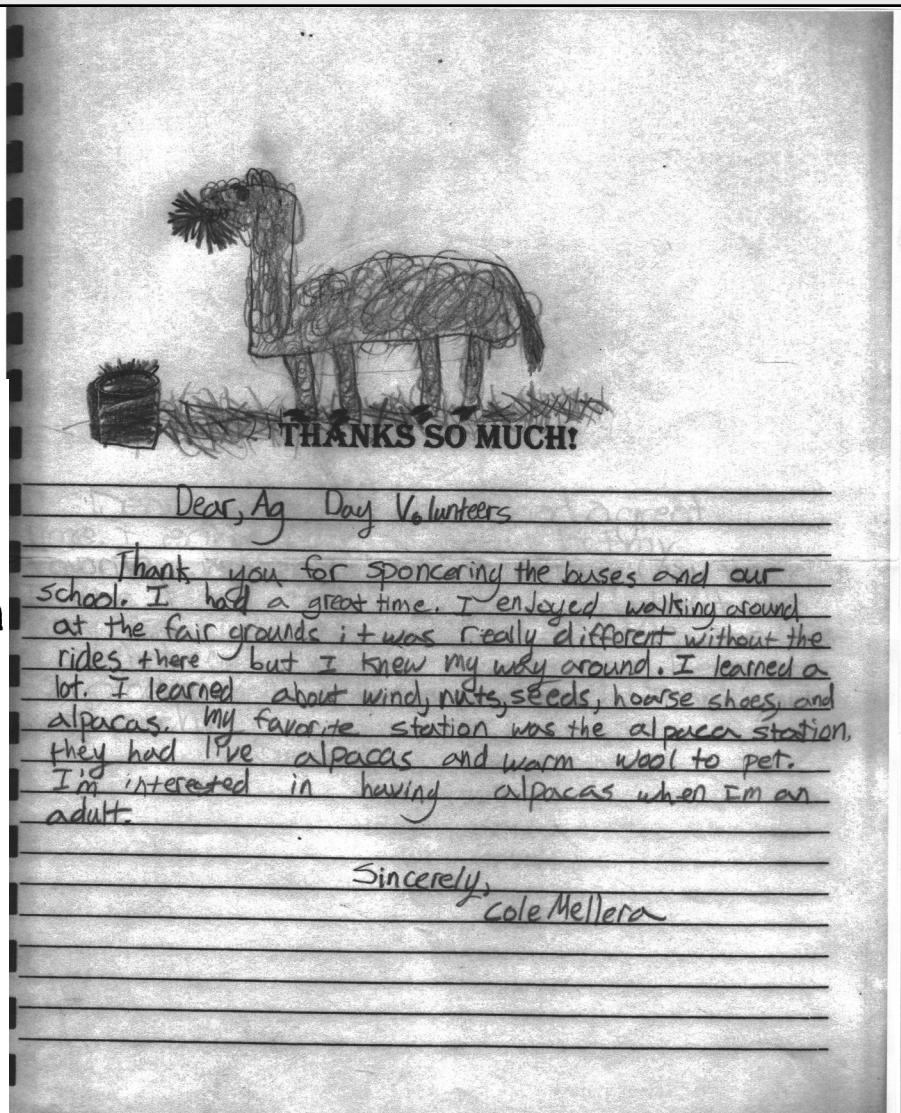 THANKS SO MUCH!
Dear, Ag Day Volunteers
Thank you for sponcering the buses and our
school. I had a great time. I enjoyed walking around
at the fair grounds it was really different without the
rides there but I knew my way around. I learned a
lot. I learned about wind, nuts, seeds, hoarse shoes, and
alpacas. My favorite station was the alpaca station,
they had live alpacas and warm wool to pet.
I'm interested in having alpacas when I'm an
adult.
Sincerely,
Cole Mellera